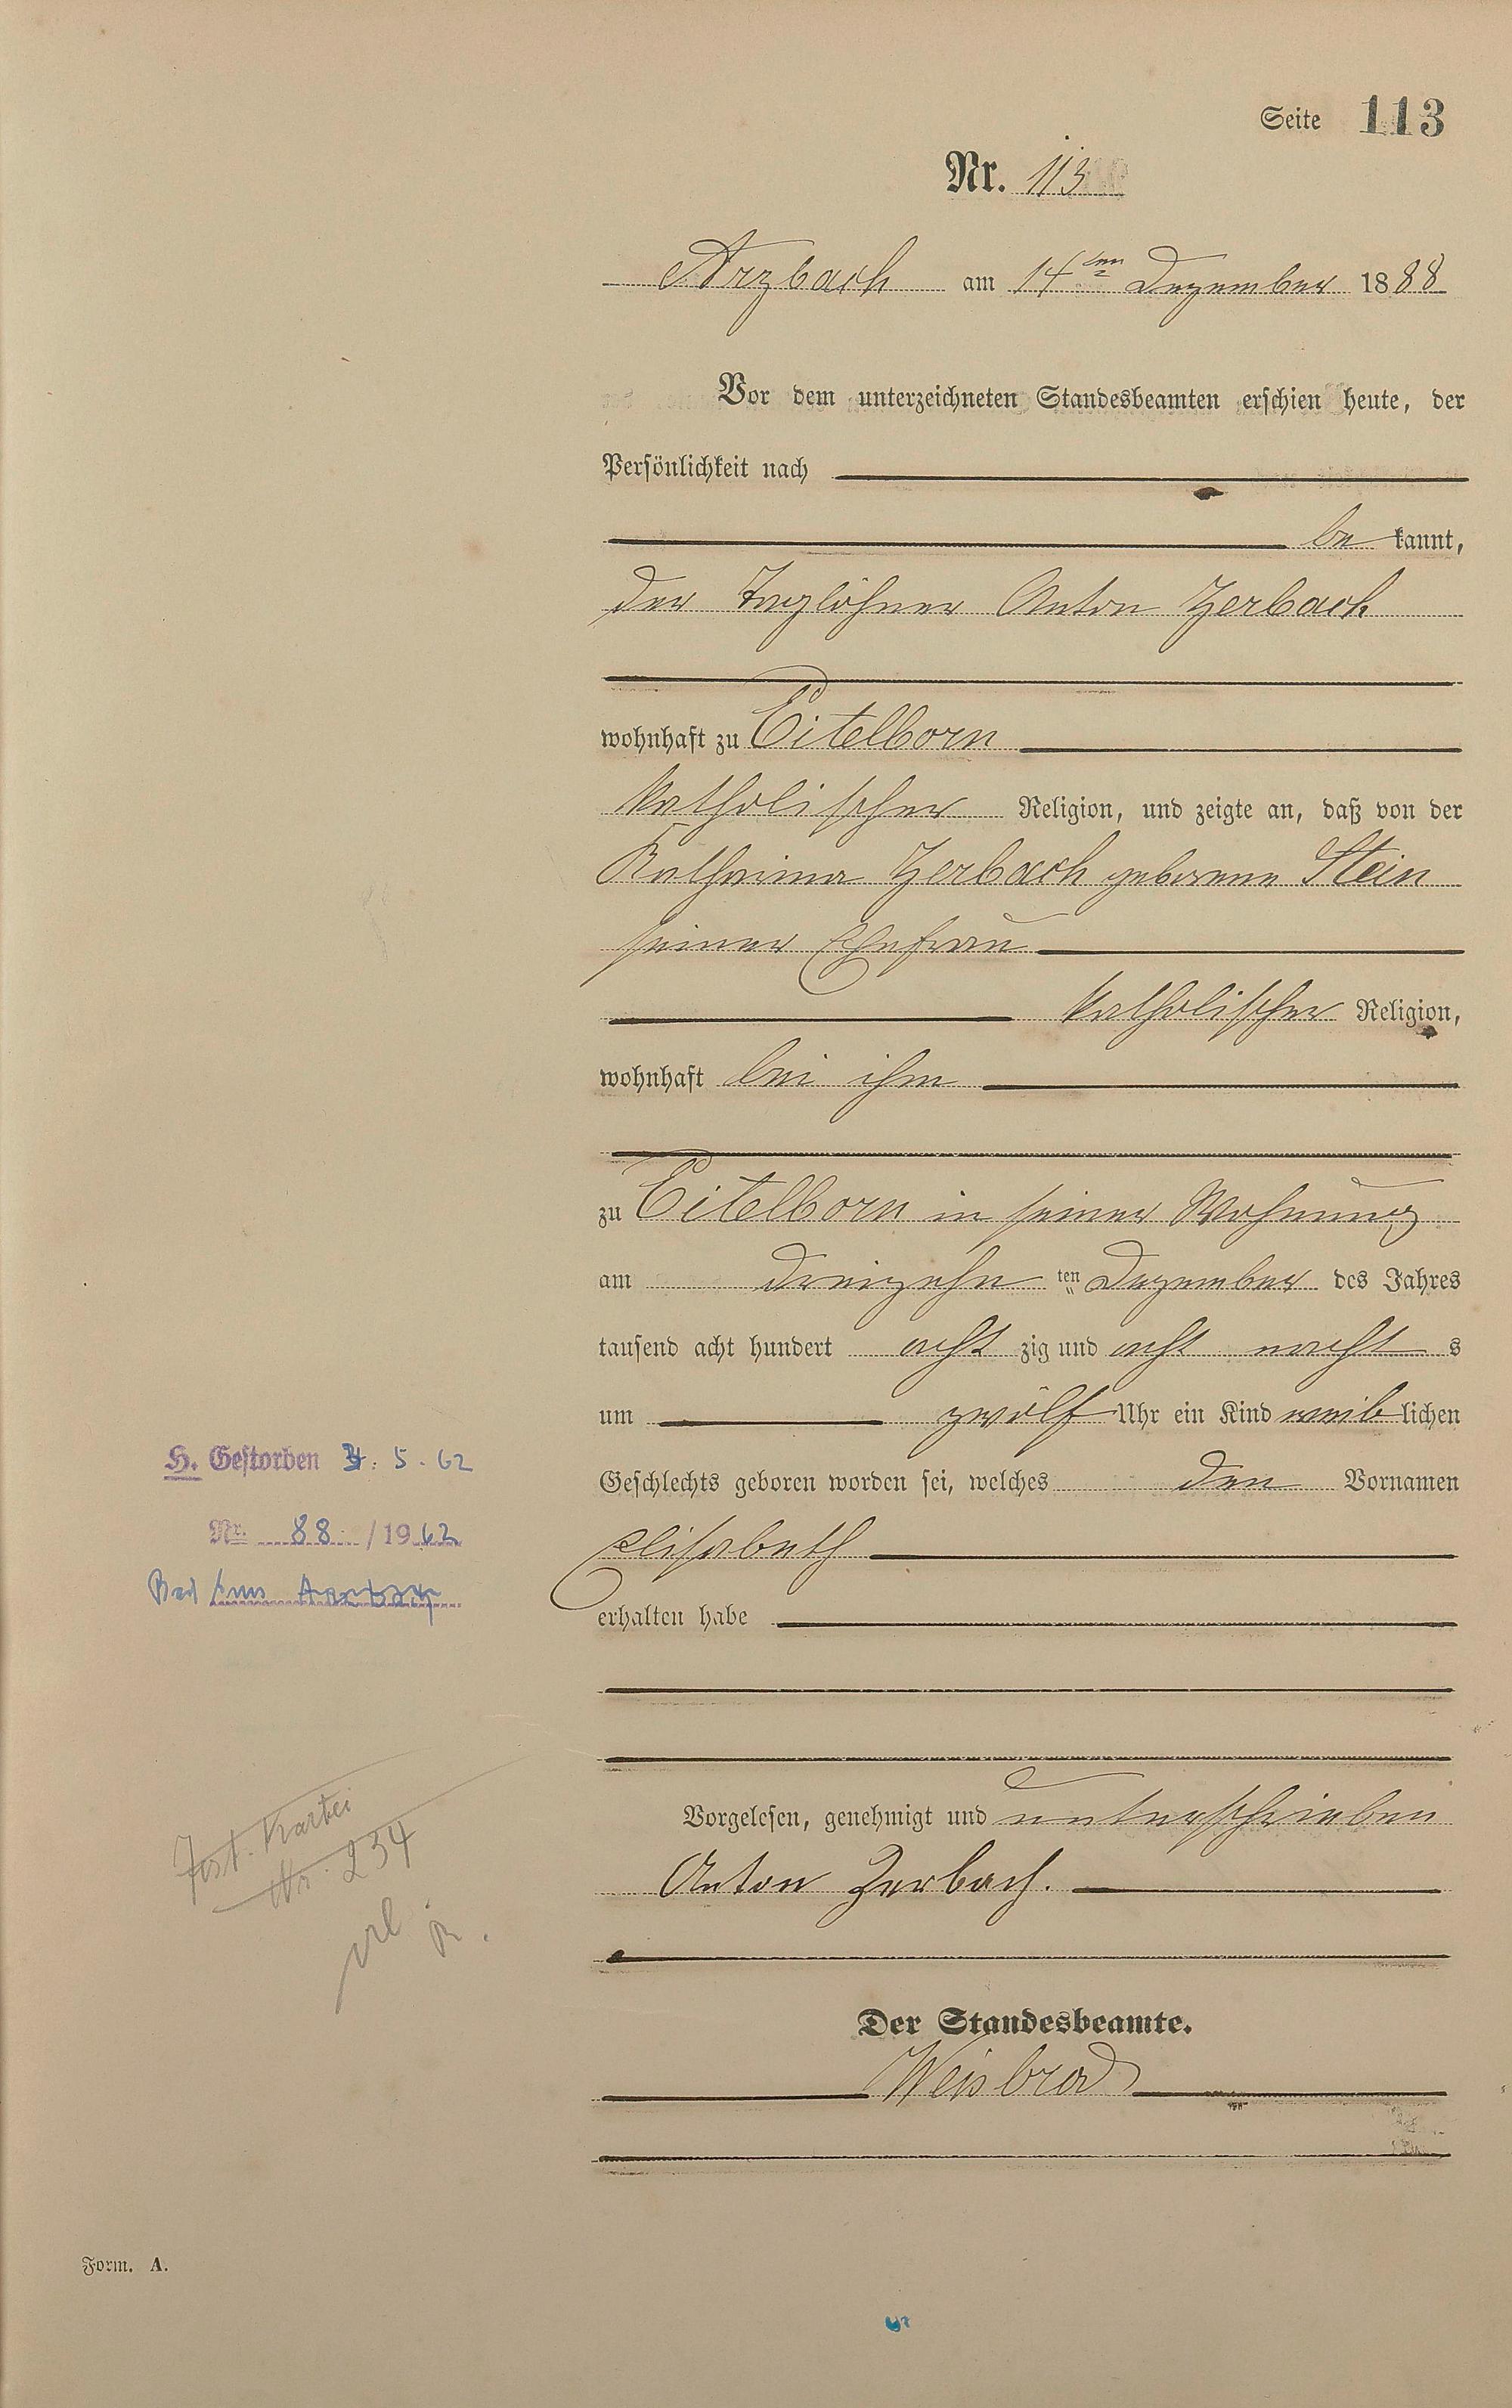 Seite 113
Nr. 113
Arzbach am 14ten Dezember 1888
Vor dem unterzeichneten Standesbeamten erschien heute, der
Persönlichkeit nach
be kannt,
der Taglöhner Anton Zerbach
wohnhaft zu Eitelborn
katholischer Religion, und zeigte an, daß von der
Katharina Zerbach geborene Stein
seiner Ehefrau
katholischer Religion,
wohnhaft bei ihm
zu Eitelborn in seiner Wohnung
am dreizehn ten Dezember des Jahres
tausend acht hundert acht zig und acht nacht s
um zwölf Uhr ein Kind weib lichen
Geschlechts geboren worden sei, welches den Vornamen
Elisabeth
erhalten habe
Vorgelesen, genehmigt und unterschrieben
Anton Zerbach.
Der Standesbeamte.
Weisbrod
H. Gestorben 5. 62
Nr. 88 / 1962
Bad Ems Arzbach
Kartei
Nr. 234
Form. A.